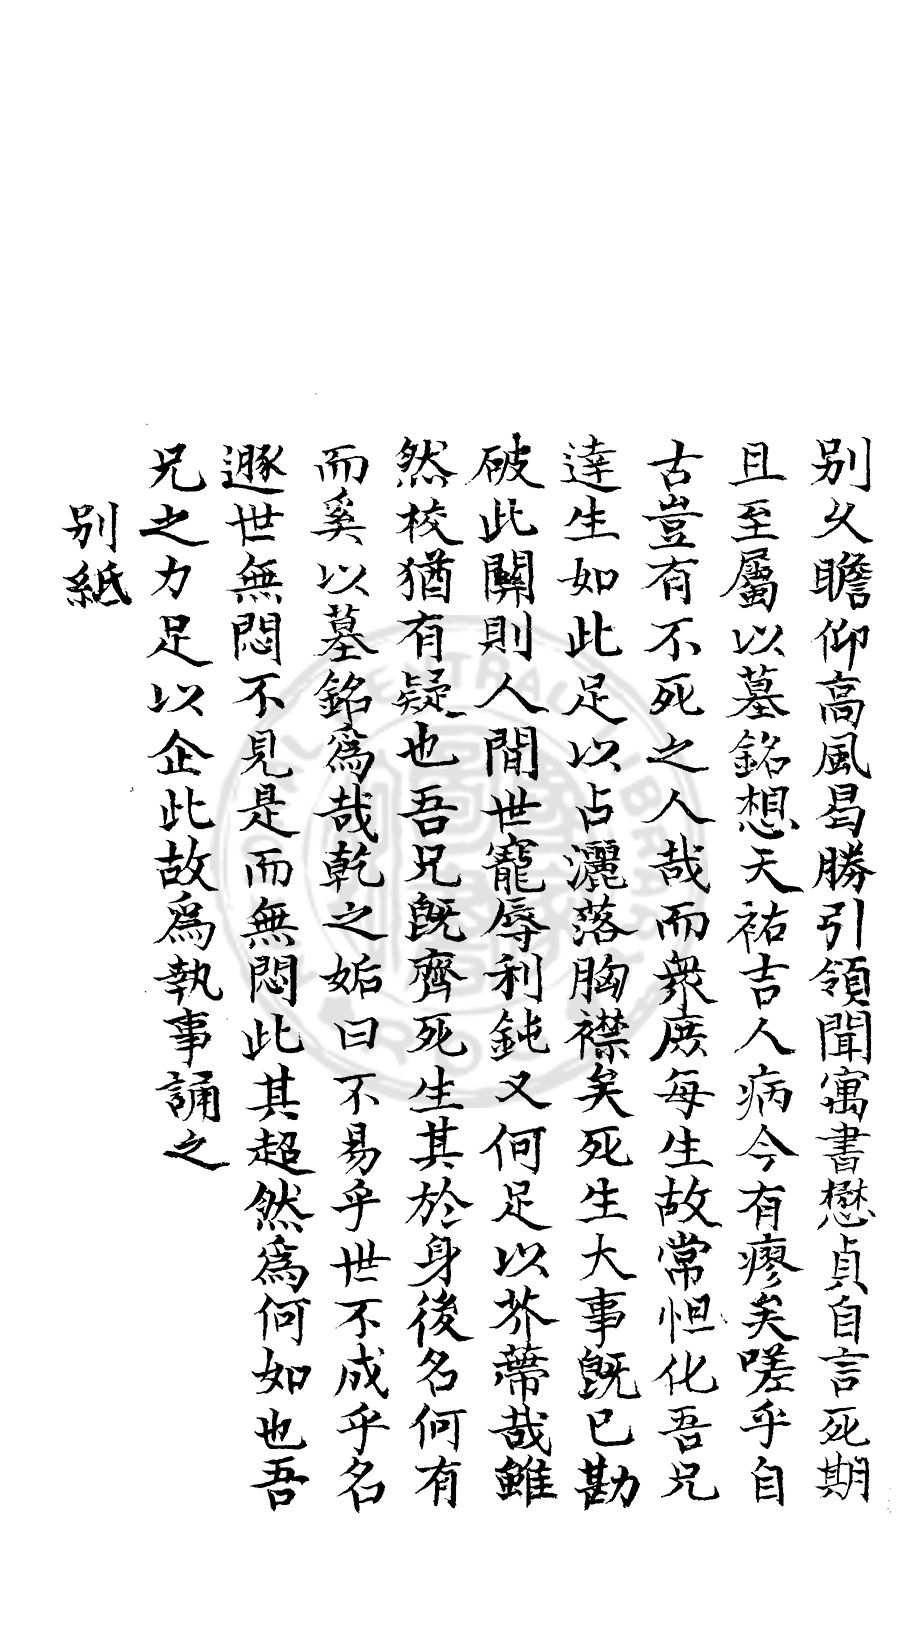 别久瞻仰高風曷勝引領聞寓書懋貞自言死期
且至屬以墓銘想天祐吉人病今有瘳矣嗟乎自
古豈有不死之人哉而衆庶每生故常怛化吾兄
達生如此足以占灑落胸襟矣死生大事既已勘
破此關則人間世寵辱利鈍又何足以芥蔕哉雖
然校猶有疑也吾兄既齊死生其於身後名何有
而奚以墓銘爲哉乾之姤曰不易乎世不成乎名
遯世無悶不見是而無悶此其超然爲何如也吾
兄之力足以企此故爲執事誦之
别紙